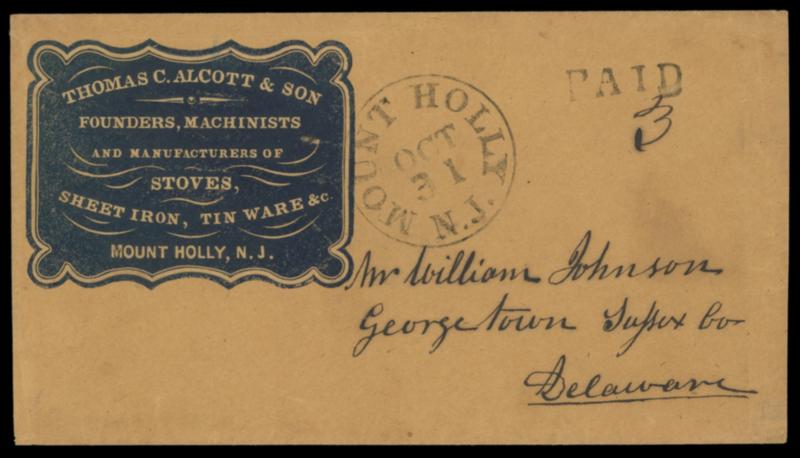 THOMAS C. ALCOTT & SON
FOUNDERS, MACHINISTS
AND MANUFACTURERS OF
STOVES,
SHEET IRON, TIN WARE &c.
MOUNT HOLLY, N. J.
MOUNT HOLLY. N.J.
OCT
31
PAID
3
Mr William Johnson
Georgetown Sussex Co
Delaware